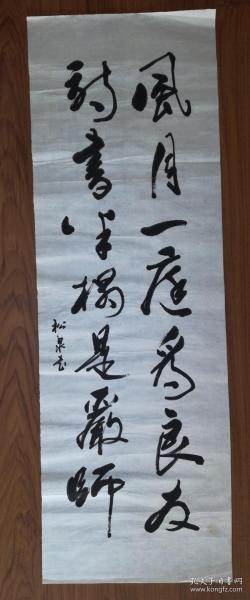 風月一庭為良友
詩書半榻是嚴師
松泉書
孔夫子旧书网
www.kongfz.com